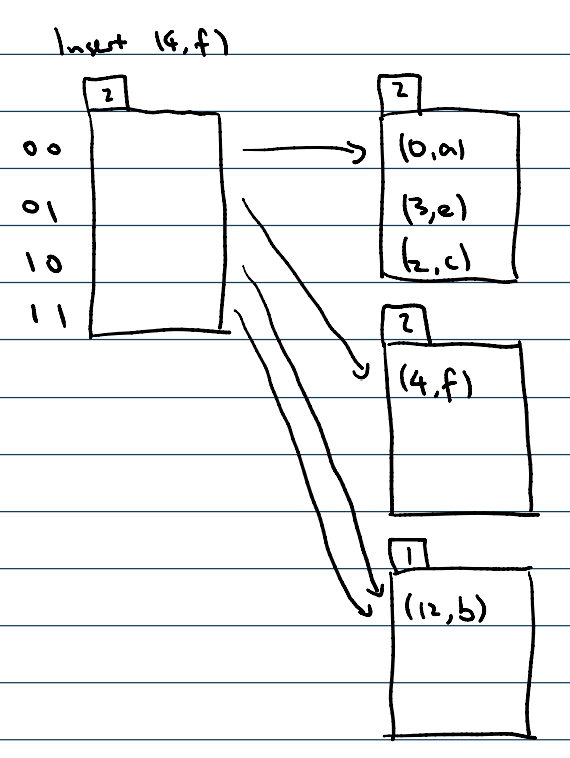 Insert (4,f)
2
00
01
10
11
2
(0,a)
(3,e)
(2,c)
2
(4,f)
1
(12,b)